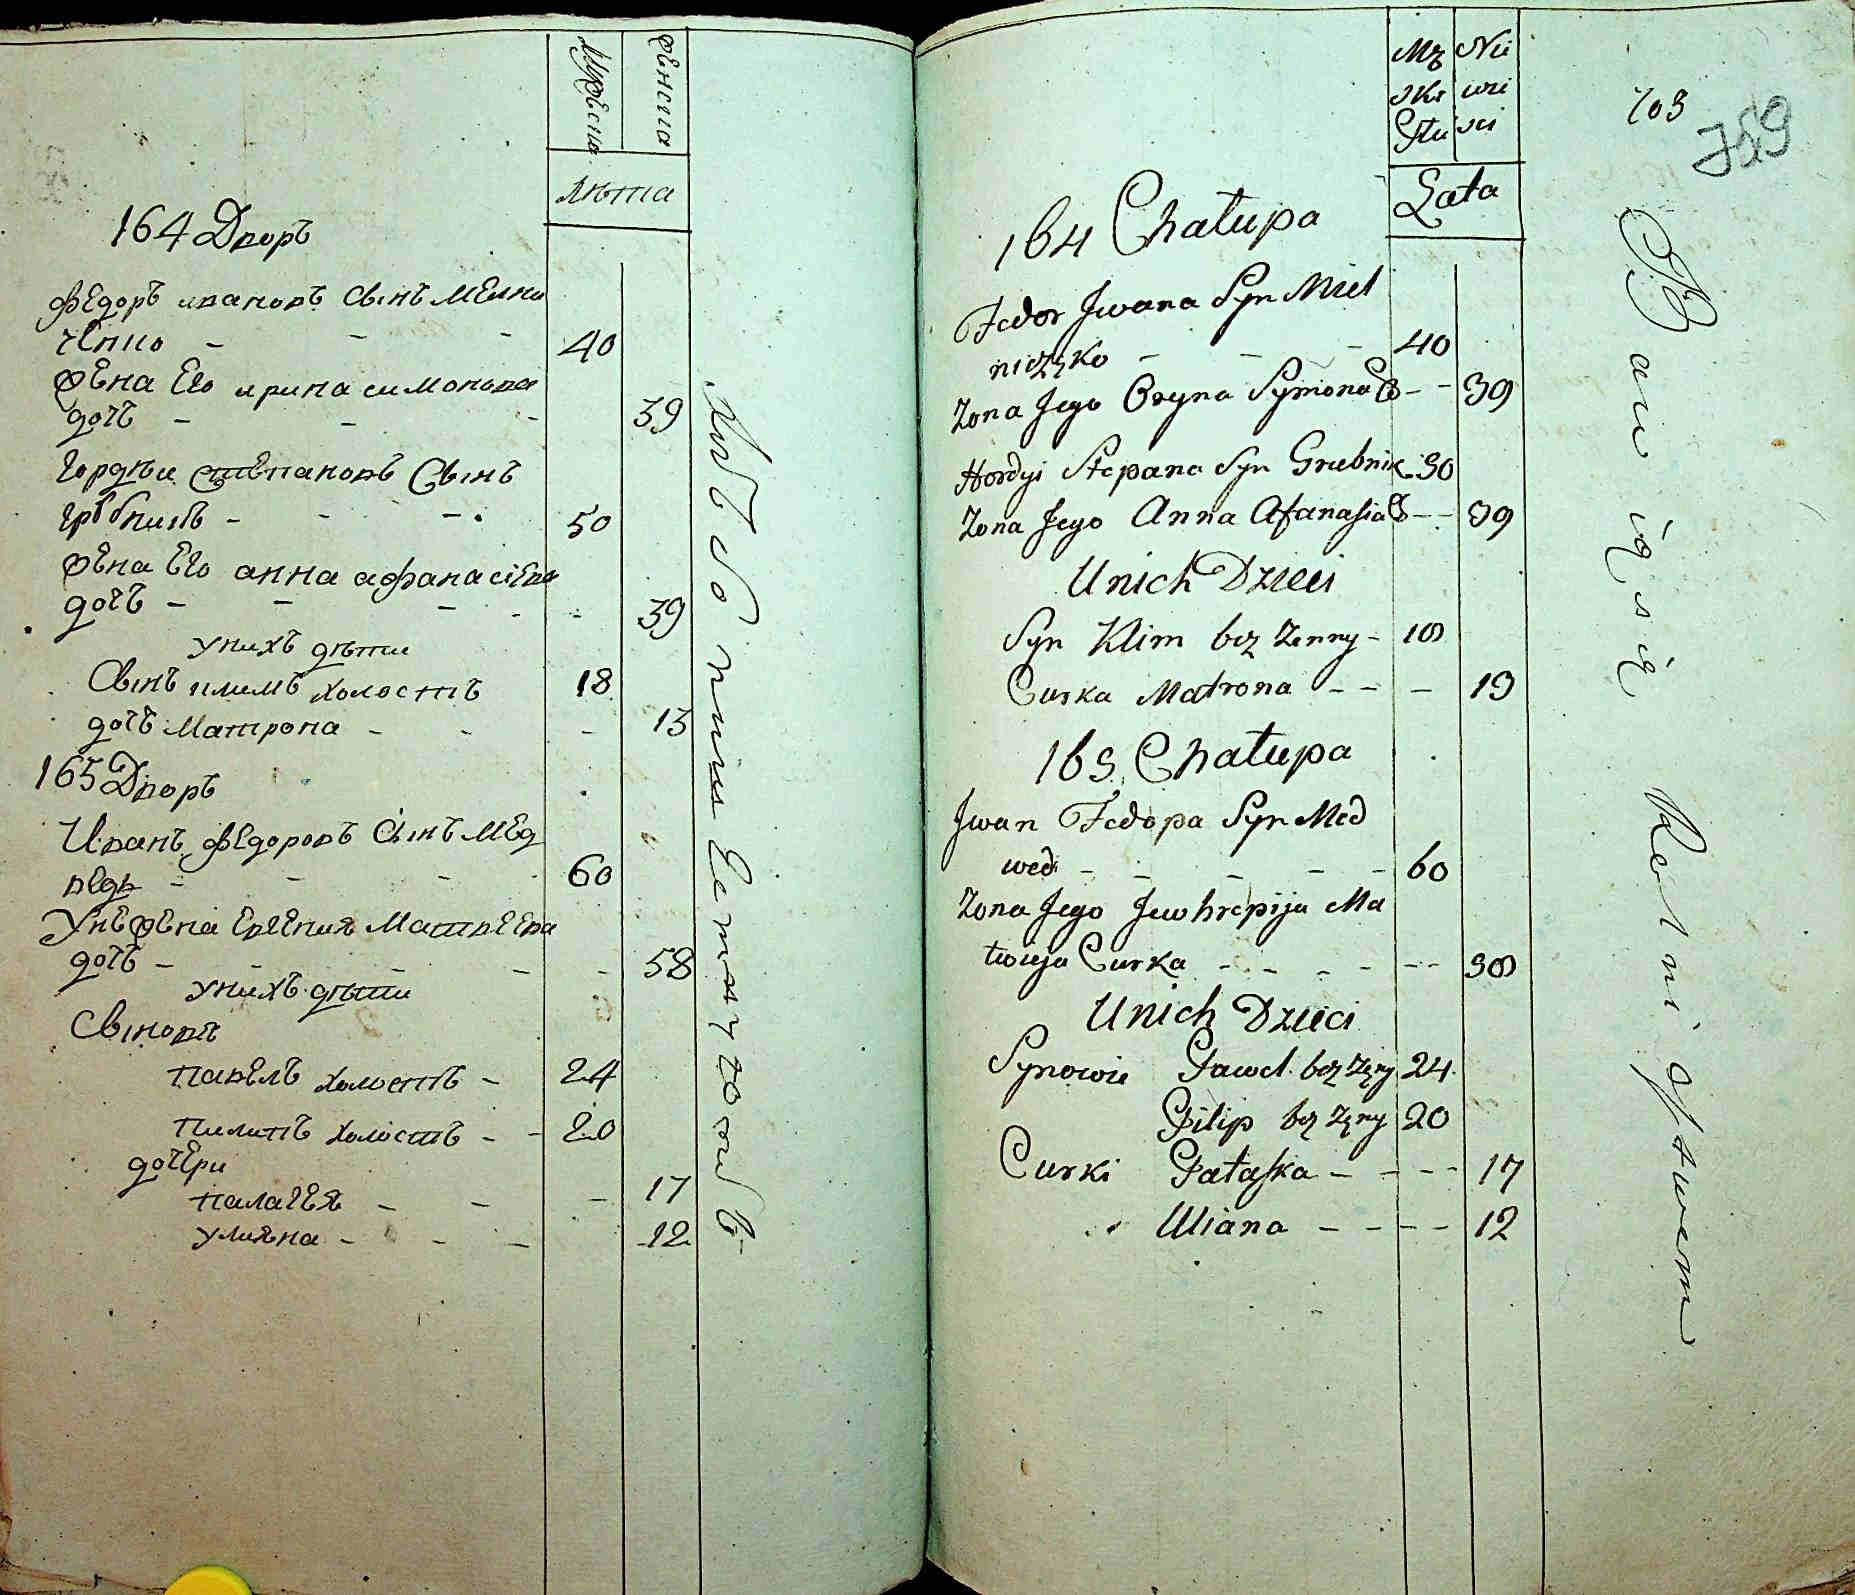 Мужеска
Женска
Лѣта
164 Дворъ
Федоръ ивановъ Сынъ Мелни
ченко - - - 40
Жена Его ирина симонова
дочь - - - 39
Гордѣи степановъ Сынъ
грубникъ - - - 50
Жена Его анна афанасіева
дочь - - - - - 39
унихъ дѣти
Сынъ климъ холостъ 18
дочь Матрона - - - 13
165 Дворъ
Иванъ федоровъ Сынъ Мед
ведь - - - - 60
Унево жена Евгения Матвеева
дочь - - - - - 58
унихъ дѣти
Сыновя
павелъ холостъ - 24
пилипъ холостъ - - 20
дочери
палагея - - - 17
улияна - - - 12
Хлебопашествуютъ
Mę
skei
Płci
Nie
wie
sci
Lata
703
759
164 Chałupa
Fedor Jwana Syn Miel
niczęko - - - 40
Żona Jego Oryna Symona C - - 39
Hordyi Stepana Syn Grubnik 50
Żona Jego Anna Afanasia C - - 39
Unich Dzieci
Syn Klim bez Żenny - 18
Curka Matrona - - - 13
165 Chałupa
Jwan Fedopa Syn Med
wed - - - - - 60
Żona Jego Jewhrepija Ma
twieja Curka - - - - - - 58
Unich Dzieci
Synowie Paweł bez Żęny 24
Filip bez Żęny 20
Curki Pałaska - - - - 17
Uliana - - - - 12
Bawią się Rolnictwem